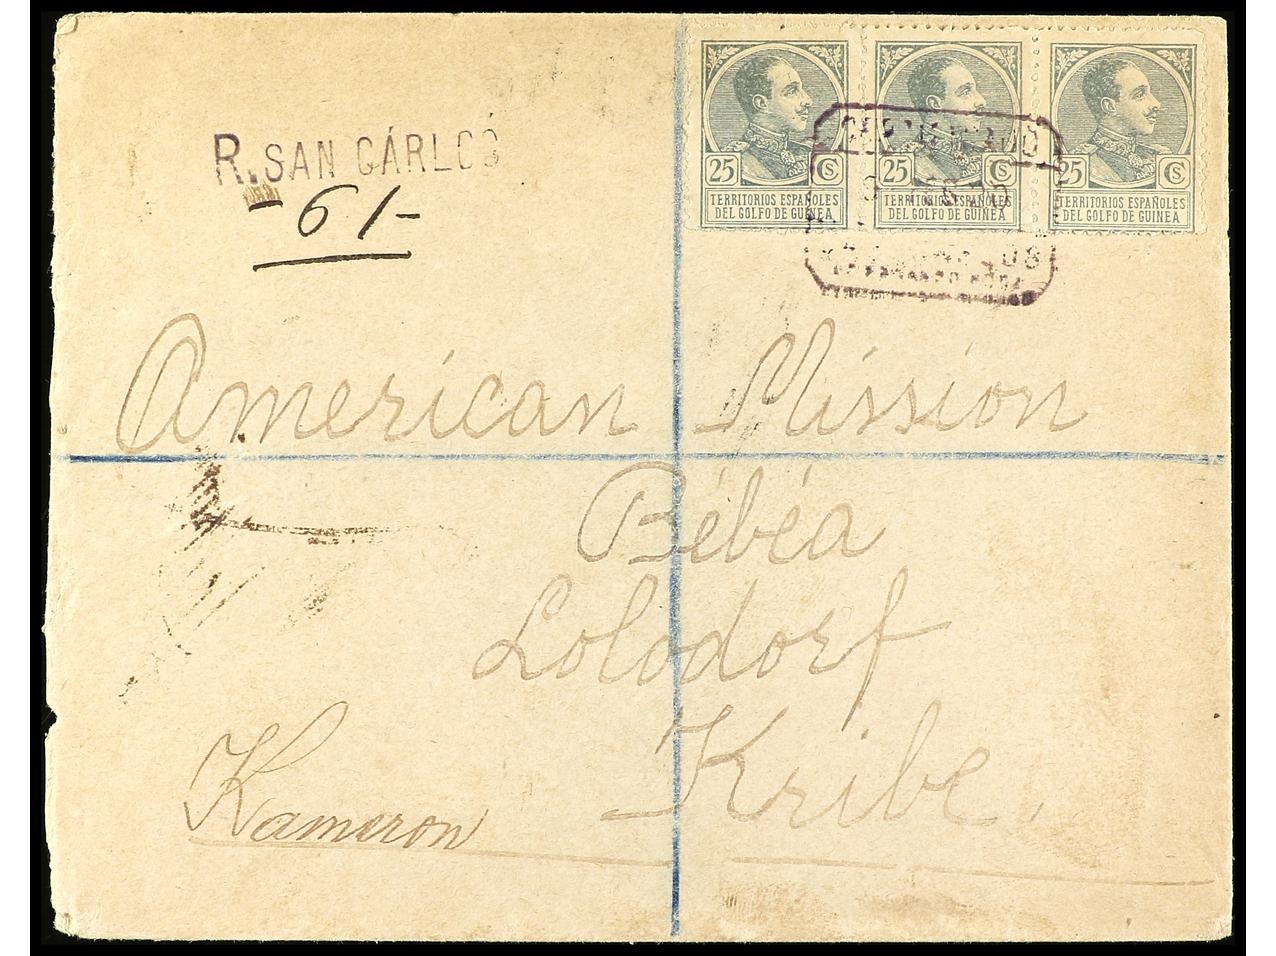 R. SAN CÁRLOS
61-
25 Cs.
TERRITORIOS ESPAÑOLES
DEL GOLFO DE GUINEA
25 Cs.
TERRITORIOS ESPAÑOLES
DEL GOLFO DE GUINEA
25 Cs.
TERRITORIOS ESPAÑOLES
DEL GOLFO DE GUINEA
American Mission
Bébéa
Lolodorf
Kribe.
Kameron